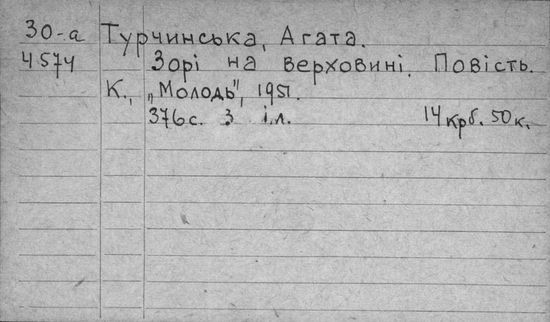 30-а Турчинська, Агата.
4574 Зорі на верховині. Повість.
К., „Молодь", 1951.
376с. з іл. 14 крб. 50 к.